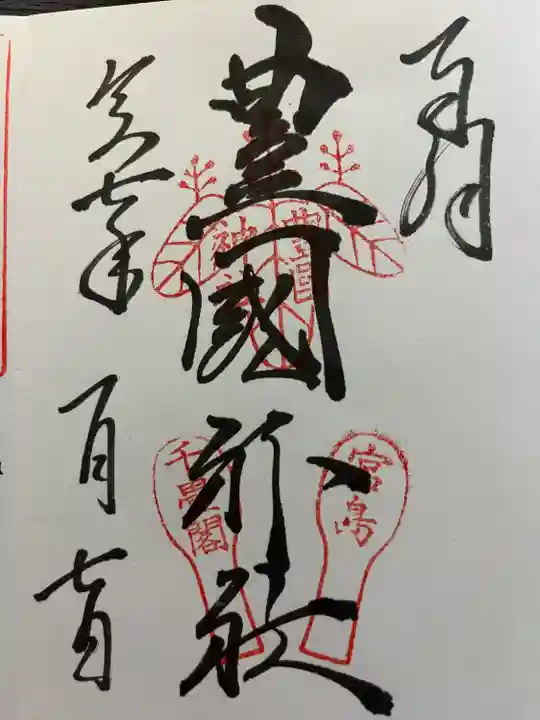 奉拝
豊國神社
令和七年
一月
七日
宮島
千畳閣